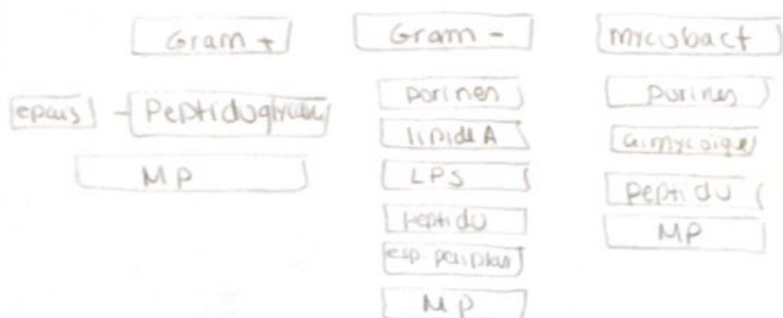 Gram +
epais
Peptidoglycane
MP
Gram -
porines
lipide A
LPS
peptido
esp. periplas
MP
mycobact
porines
a.mycoique
peptido
MP